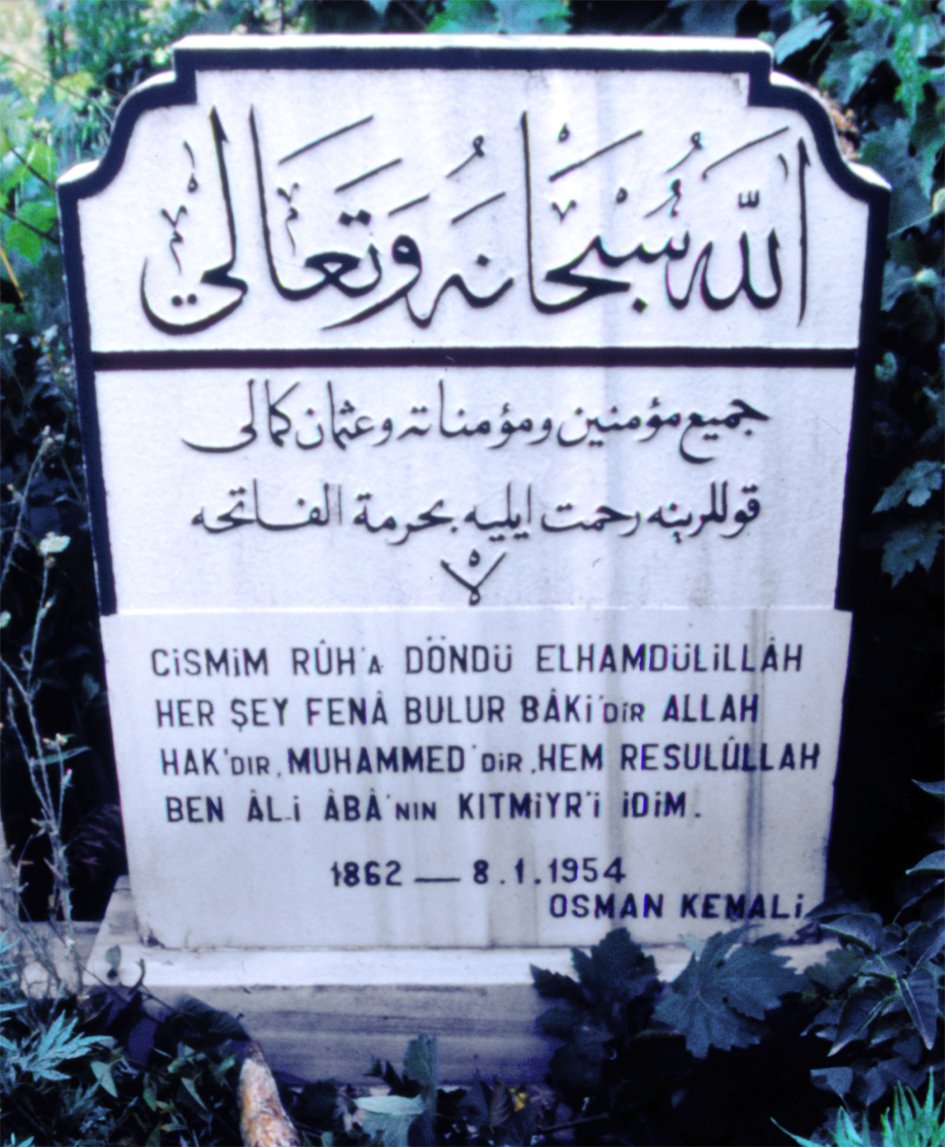 الله سُبْحَانُهُ وَتَعَالَى
جميع مؤمنين ومؤمناته وعثمان كمالى
قوللرينه رحمت ايليه بحرمة الفاتحه
CİSMİM RÛH'A DÖNDÜ ELHAMDÜLİLLÂH
HER ŞEY FENÂ BULUR BÂKİ'DİR ALLAH
HAK'DIR, MUHAMMED'DİR, HEM RESULÛLLAH
BEN ÂL-İ ÂBÂ'NIN KITMİYR'İ İDİM.
1862 — 8.1.1954
OSMAN KEMALİ